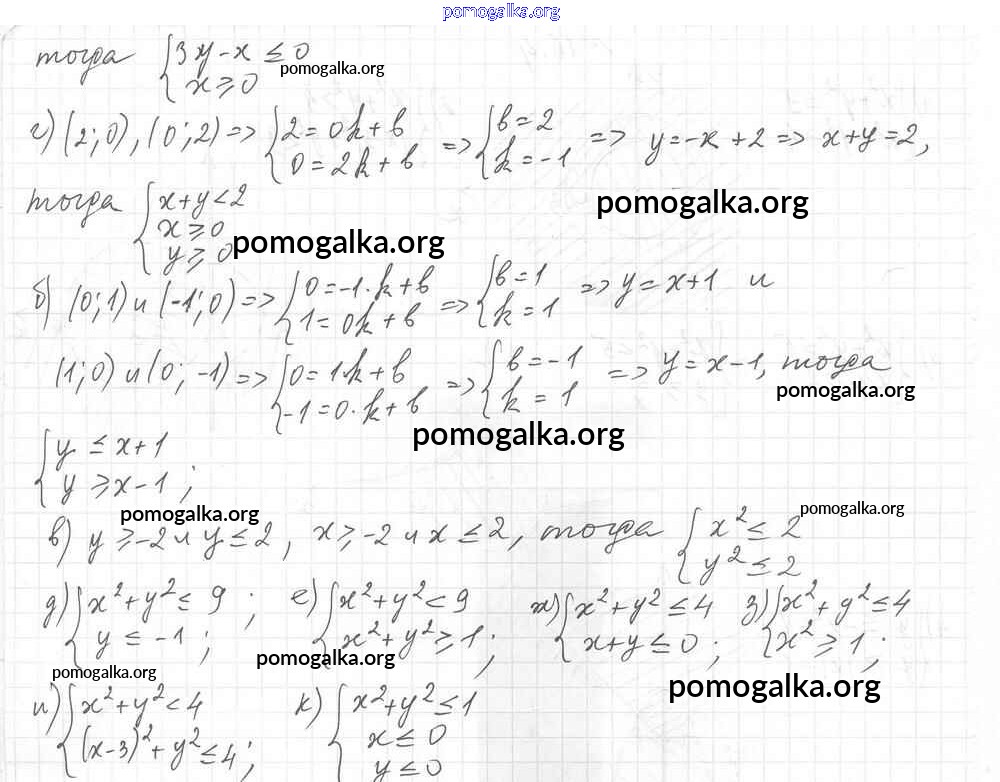 pomogalka.org
тогда { 3y - x ≤ 0
x ≥ 0
pomogalka.org
г) (2; 0), (0; 2) => { 2 = 0k + b
0 = 2k + b => { b = 2
k = -1 => y = -x + 2 => x + y = 2,
тогда { x + y < 2
x ≥ 0
y ≥ 0
pomogalka.org
pomogalka.org
б) (0; 1) и (-1; 0) => { 0 = -1·k + b
1 = 0k + b => { b = 1
k = 1 => y = x + 1 и
(1; 0) и (0; -1) => { 0 = 1·k + b
-1 = 0·k + b => { b = -1
k = 1 => y = x - 1, тогда
pomogalka.org
pomogalka.org
{ y ≤ x + 1
y ≥ x - 1;
pomogalka.org
pomogalka.org
в) y ≥ -2 и y ≤ 2, x ≥ -2 и x ≤ 2, тогда { x² ≤ 2
y² ≤ 2
д) { x² + y² ≤ 9
y ≤ -1; е) { x² + y² < 9
x² + y² ≥ 1; ж) { x² + y² ≤ 4
x + y ≤ 0; з) { x² + y² ≤ 4
x² ≥ 1;
pomogalka.org
pomogalka.org
pomogalka.org
и) { x² + y² < 4
(x - 3)² + y² ≤ 4; к) { x² + y² ≤ 1
x ≤ 0
y ≤ 0